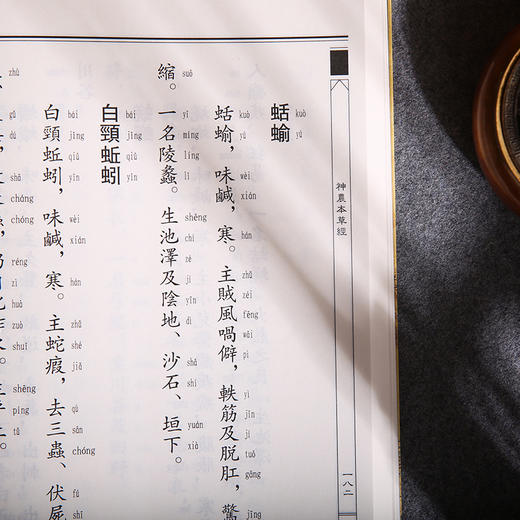 神農本草經
一八二
kuò yú
蛞蝓
kuò yú wèi xián hán zhǔ zéi fēng wāi pì yì jīn jí tuō gāng jīng
蛞蝓，味鹹，寒。主賊風喎僻，軼筋及脱肛，驚
suō yī míng líng lí shēng chí zé jí yīn dì shā shí yuán xià
縮。一名陵蠡。生池澤及陰地、沙石、垣下。
bái jǐng qiū yǐn
白頸蚯蚓
bái jǐng qiū yǐn wèi xián hán zhǔ shé jiǎ qù sān chóng fú shī
白頸蚯蚓，味鹹，寒。主蛇瘕，去三蟲、伏屍
cháng chóng réng zì huà zuò shuǐ shēng píng tǔ